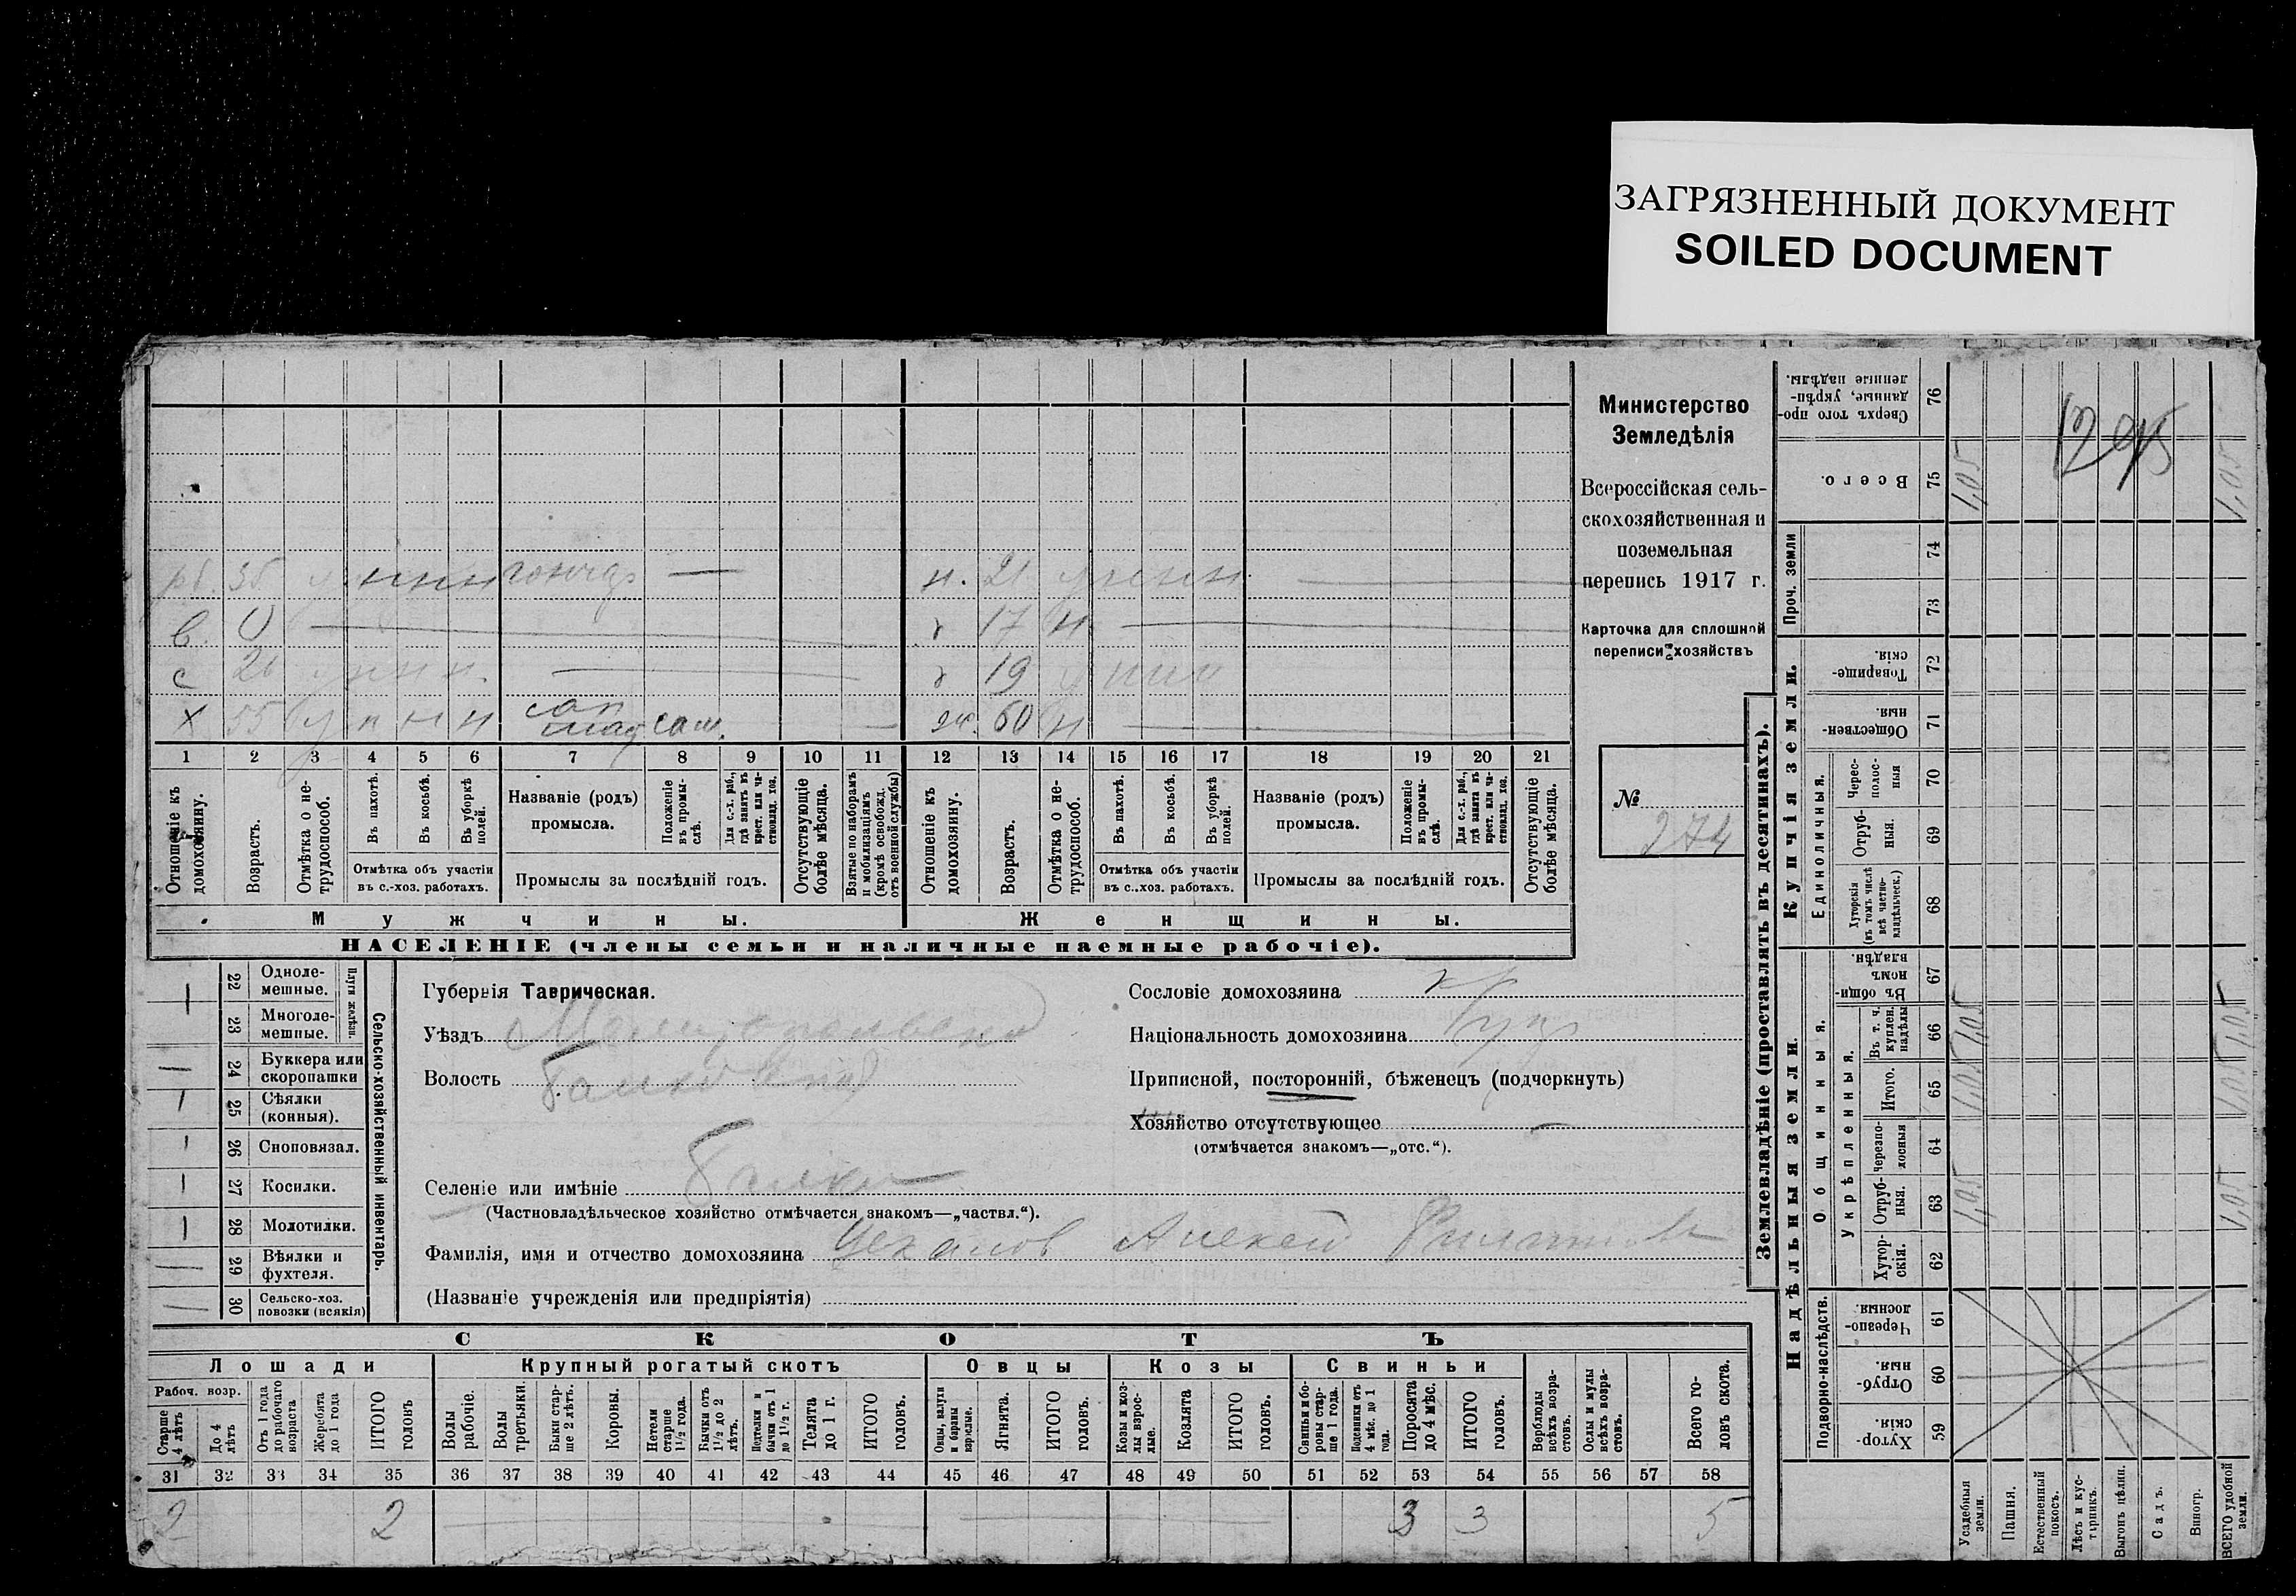 ЗАГРЯЗНЕННЫЙ ДОКУМЕНТ
SOILED DOCUMENT
Министерство
Земледѣлія
Всероссійская сель-
скохозяйственная и
поземельная
перепись 1917 г.
Карточка для сплошной
переписи хозяйствъ
№
274
35 гончар —
н. 21
17 н
с
19
х 55 у н н н сам.
60 н
1 2 3 4 5 6 7 8 9 10 11 12 13 14 15 16 17 18 19 20 21
Отношеніе къ домохозяину.
Возрастъ.
Отмѣтка о не-трудоспособ.
Въ пахотѣ.
Въ косьбѣ.
Въ уборкѣ полей.
Отмѣтка объ участіи
въ с.-хоз. работахъ.
Названіе (родъ)
промысла.
Положеніе въ промы-слѣ.
Для с.-х. раб., гдѣ занятъ въ крест. или ча-ствовлад. хоз.
Промыслы за послѣдній годъ.
Отсутствующіе болѣе мѣсяца.
Взятые по наборамъ и мобилизаціямъ (кромѣ освобожд. отъ военной службы)
Отношеніе къ домохозяину.
Возрастъ.
Отмѣтка о не-трудоспособ.
Въ пахотѣ.
Въ косьбѣ.
Въ уборкѣ полей.
Отмѣтка объ участіи
въ с.-хоз. работахъ.
Названіе (родъ)
промысла.
Положеніе въ промы-слѣ.
Для с.-х. раб., гдѣ занята въ крест. или ча-ствовлад. хоз.
Промыслы за послѣдній годъ.
Отсутствующіе болѣе мѣсяца.
Мужчины.
Женщины.
НАСЕЛЕНІЕ (члены семьи и наличные наемные рабочіе).
22 Одноле-мешные.
23 Многоле-мешные.
Плуги желѣзн.
24 Буккера или скоропашки
25 Сѣялки (конныя).
26 Сноповязал.
27 Косилки.
28 Молотилки.
29 Вѣялки и фухтеля.
30 Сельско-хоз. повозки (всякія)
Сельско-хозяйственный инвентарь.
Губернія Таврическая.
Уѣздъ
Волость
Селеніе или имѣніе Балки
(Частновладѣльческое хозяйство отмѣчается знакомъ—„частвл.“).
Фамилія, имя и отчество домохозяина Алексѣй
(Названіе учрежденія или предпріятія)
Сословіе домохозяина
Національность домохозяина
Приписной, посторонній, бѣженецъ (подчеркнуть)
Хозяйство отсутствующее
(отмѣчается знакомъ—„отс.“).
СКОТЪ
Лошади
Крупный рогатый скотъ
Овцы
Козы
Свиньи
Рабоч. возр.
Старше 4 лѣтъ
До 4 лѣтъ
Отъ 1 года до рабочаго возраста
Жеребята до 1 года
ИТОГО головъ
Волы рабочіе.
Волы третьяки.
Быки стар-ше 2 лѣтъ.
Коровы.
Нетели старше 1½ года.
Бычки отъ 1½ до 2 лѣтъ.
Подтелки и бычки отъ 1 до 1½ г.
Телята до 1 г.
ИТОГО головъ.
Овцы, валухи и бараны взрослые.
Ягнята.
ИТОГО головъ.
Козы и коз-лы взрос-лые.
Козлята
ИТОГО головъ.
Свиньи и бо-ровы стар-ше 1 года.
Подсвинки отъ 4 мѣс. до 1 года.
Поросята до 4 мѣс.
ИТОГО головъ.
Верблюды всѣхъ возра-стовъ.
Ослы и мулы всѣхъ возра-стовъ.
Всего го-ловъ скота.
31 32 33 34 35 36 37 38 39 40 41 42 43 44 45 46 47 48 49 50 51 52 53 54 55 56 57 58
2 2 3 3 5
Землевладѣніе (проставлять въ десятинахъ).
Сверхъ того про-данные, укрѣп-ленные надѣлы.
76
Всего.
75
Проч. земли
74
73
Купчія земли.
Товарище-скія.
72
Обществен-ныя.
71
Единоличныя.
Черес-полос-ныя
70
Отруб-ныя.
69
Хуторскія (въ томъ числѣ всѣ частно-владѣльческ.)
68
Надѣльныя земли.
Общинныя.
Въ общин-номъ владѣн.
67
Укрѣпленныя.
Въ т. ч. куплен. надѣлы
66
Итого.
65
Черезпо-лосныя
64
Отруб-ныя.
63
Хутор-скія.
62
Подворно-наслѣдств.
Черезпо-лосныя.
61
Отруб-ныя.
60
Хутор-скія.
59
Усадебныя земли.
Пашня.
Естественный покосъ.
Лѣсъ и кус-тарникъ.
Выгонъ цѣлин.
Садъ.
Виногр.
ВСЕГО удобной земли.
1,05 1,05 1,05 1,05
1,05 1,05 1,05 1,05